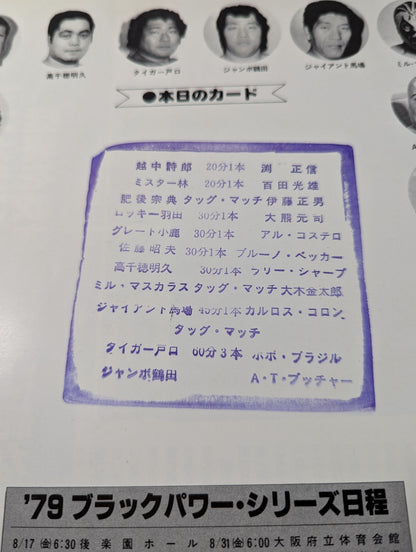 高千穂明久
タイガー戸口
ジャンボ鶴田
ジャイアント馬場
ミル・マ
●本日のカード
越中詩郎 20分1本 渕 正信
ミスター林 20分1本 百田光雄
肥後宗典 タッグ・マッチ 伊藤正男
ロッキー羽田 30分1本 大熊元司
グレート小鹿 30分1本 アル・コステロ
佐藤昭夫 30分1本 ブルーノ・ベッカー
高千穂明久 30分1本 ラリー・シャープ
ミル・マスカラス タッグ・マッチ 大木金太郎
ジャイアント馬場 45分1本 カルロス・コロン
タッグ・マッチ
タイガー戸口 60分3本 ボボ・ブラジル
ジャンボ鶴田 A・T・ブッチャー
'79 ブラックパワー・シリーズ日程
8/17㊎6:30 後楽園ホール 8/31㊎6:00 大阪府立体育会館